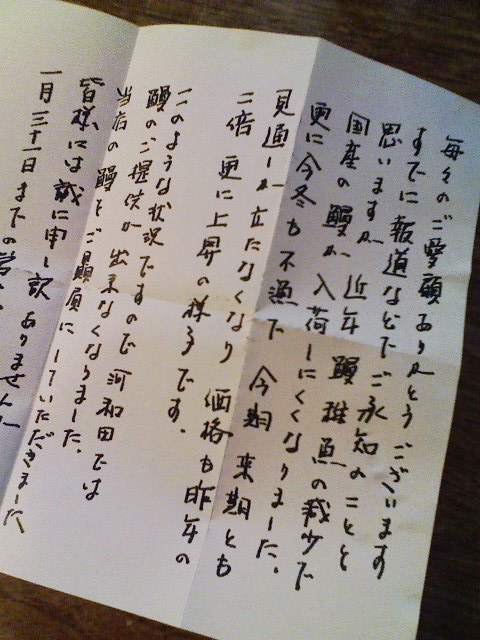 毎々のご愛顧ありがとうございます
すでに報道などでご承知のことと
思いますが 近年 鰻稚魚の減少で
国産の鰻が入荷しにくくなりました。
更に今冬も不漁で 今期 来期とも
見通しが立たなくなり 価格も昨年の
二倍 更に上昇の様子です。
このような状況ですので 河和田では
鰻のご提供が出来なくなりました。
当店の鰻をご贔屓にしていただきました
皆様には誠に申し訳ありませんが
一月三十一日までの営